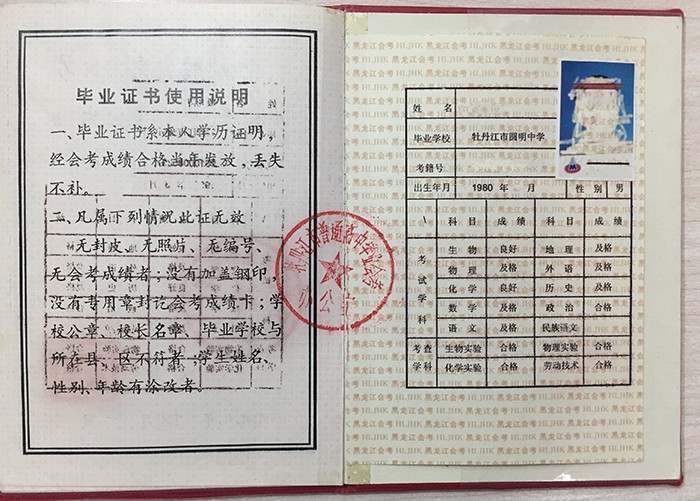 毕业证书使用说明
一、毕业证书系本人学历证明，
经会考成绩合格当年发放，丢失
不补。
二、凡属下列情况此证无效
无封皮、无照片、无编号、
无会考成绩者；没有加盖钢印，
没有专用章封讫会考成绩卡；学
校公章、校长名章、毕业学校与
所在县、区不符者；学生姓名、
性别、年龄有涂改者。
姓名
毕业学校 牡丹江市圆明中学
考籍号
出生年月 1980 年 月 性别 男
\ 科目 成绩 科目 成绩
考试学科 生物 良好 地理 及格
物理 及格 外语 及格
化学 良好 历史 及格
数学 及格 政治 合格
语文 及格 民族语文
考查学科 生物实验 合格 物理实验 合格
化学实验 合格 劳动技术 合格
黑龙江会考 HLJHK